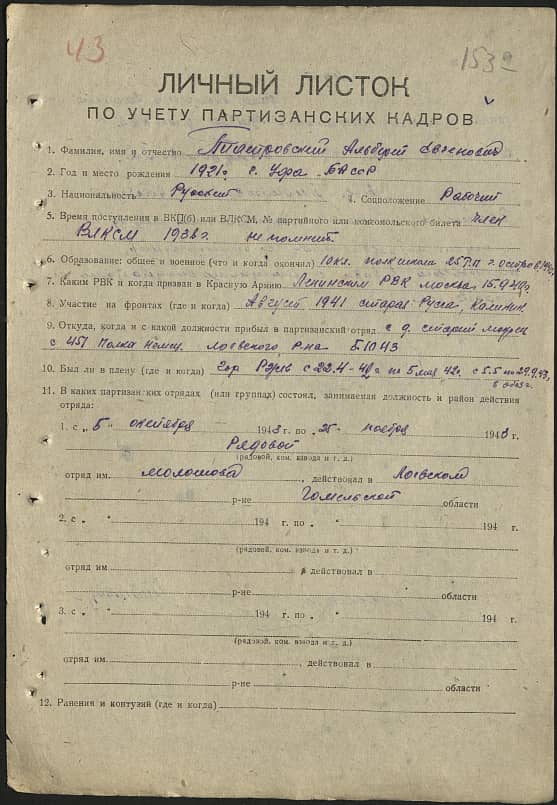 43
153
ЛИЧНЫЙ ЛИСТОК
ПО УЧЕТУ ПАРТИЗАНСКИХ КАДРОВ
1. Фамилия, имя и отчество Пиастровский Альберт
2. Год и место рождения 1921г. г. Уфа БАССР
3. Национальность Русский 4. Соцположение Рабочий
5. Время поступления в ВКП(б) или ВЛКСМ, № партийного или комсомольского билета член
ВЛКСМ 1936г. не помнит.
6. Образование: общее и военное (что и когда окончил) 10 кл. полк школа г. Остров
7. Каким РВК и когда призван в Красную Армию Ленинским РВК Москва 15.9.40г.
8. Участие на фронтах (где и когда) Август 1941 старая Руса, Калинин.
9. Откуда, когда и с какой должности прибыл в партизанский отряд с д. старый
с 451 Полка Немец. лоевского р-на 5.10 43
10. Был ли в плену (где и когда) гор Ржев с 22.4-42г по 5 мая 42г. с 5.5 по 29.9.43
в обозе.
11. В каких партизанских отрядах (или группах) состоял, занимаемая должность и район действия
отряда:
1. с „ 5 " октября 1943 г. по „ 25 " ноября 1943 г.
Рядовой
(рядовой, ком. взвода и т. д.)
отряд им молотова, действовал в Лоевском
р-не Гомельской области
2. с „ " 194 г. по „ " 194 г.
(рядовой, ком. взвода и т. д.)
отряд им , действовал в
р-не области
3. с „ " 194 г. по „ " 194 г.
(рядовой, ком. взвода и т. д.)
отряд им , действовал в
р-не области
12. Ранения и контузий (где и когда)